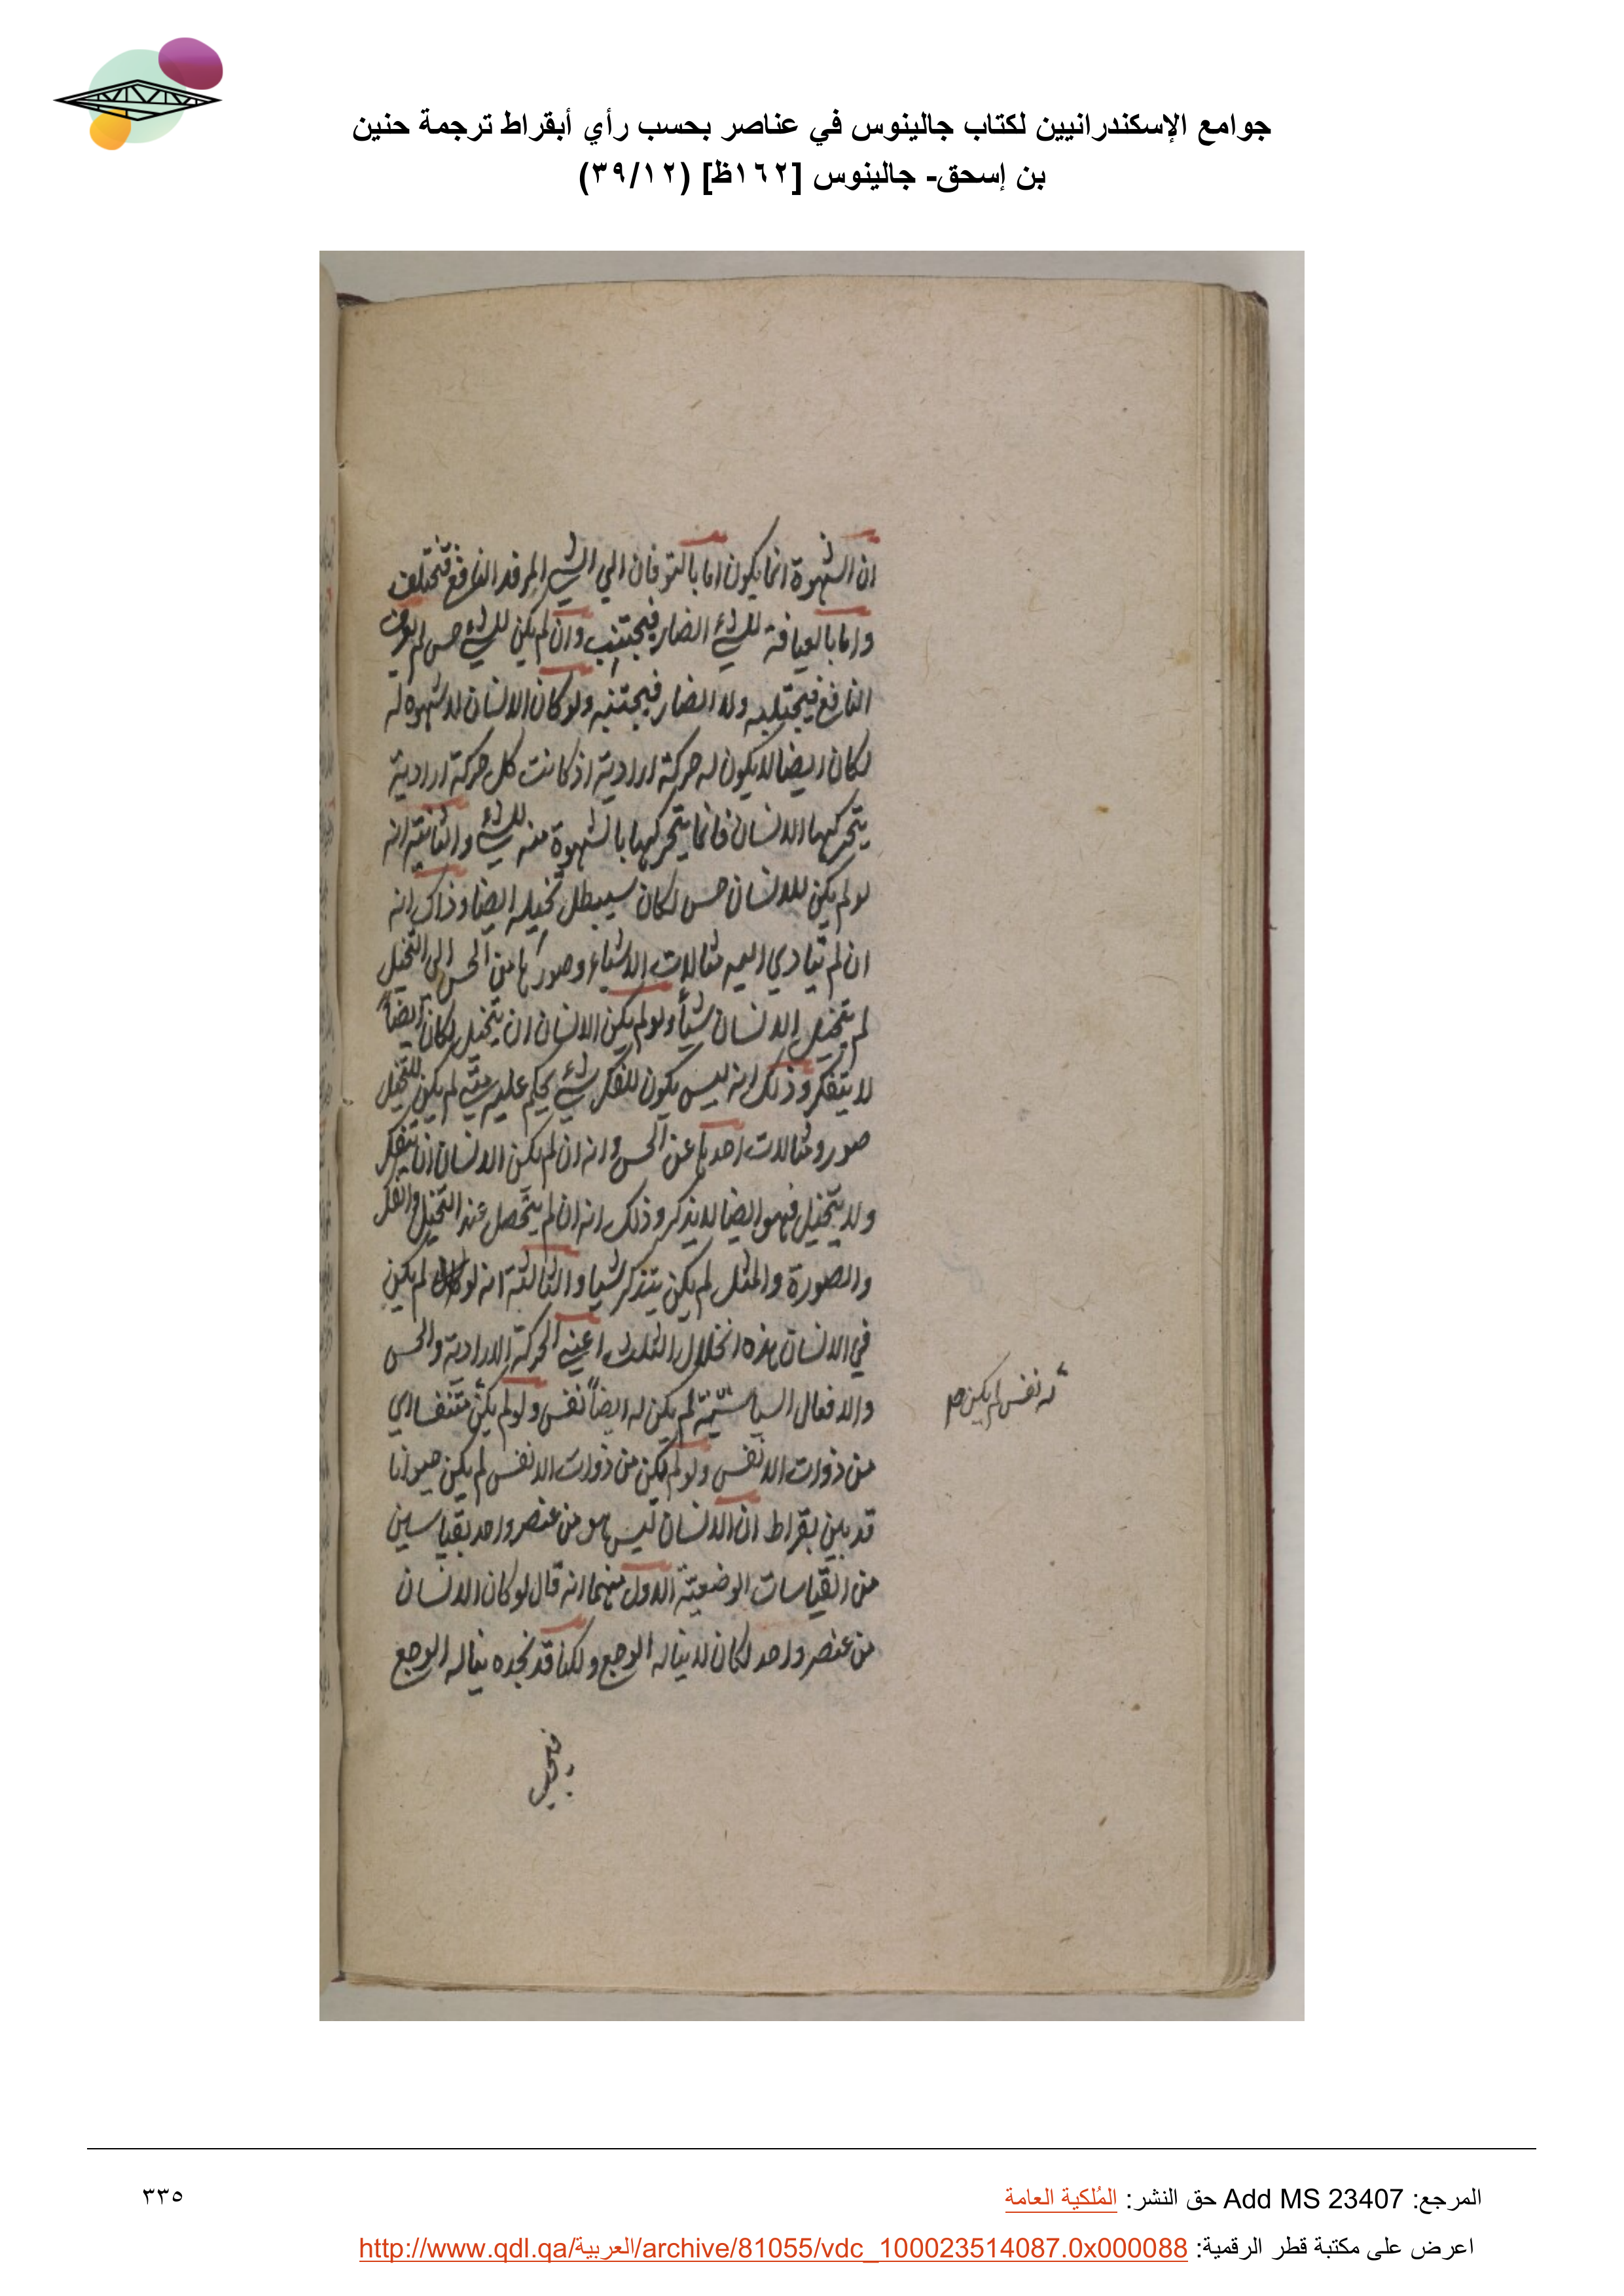 جوامع الإسكندرانيين لكتاب جالينوس في عناصر بحسب رأي أبقراط ترجمة حنين
بن إسحق- جالينوس [١٦٢ظ] (٣٩/١٢)
ان الشهوة انما يكون اما بالتوقان الي الشي النافع
واما بالعيافة للشيء الضار فيجتنب وان لم يكن للشيء حس لم
النافع فيجتلبه ولا الضار فيجتنبه ولو كان الانسان لا شهوه له
لكان ايضا لا يكون له حركة ارادية اذ كانت كل حركة ارادية
يتحركها الانسان فانما يتحركها بالشهوة منه للشيء والثانية انه
لو لم يكن للانسان حس لكان سيبطل تخيله ايضا وذاك انه
ان لم تتادي اليه مثالات الاشياء وصورها من الحس الى التخيل
لم يتخيل الانسان شيأ ولو لم يكن الانسان ان يتخيل لكان ايضاً
لا يتفكر وذلك انه ليس يكون للفكر شيء يحكم عليه متي لم يكن للتخيل
صور ومثالات احدها عن الحس وانه ان لم يكن الانسان ان يتفكر
ولا يتخيل فهو ايضا لا يذكر وذلك انه ان لم يتحصل عند التخيل والفكر
والصورة والمثل لم يكن يتذكر شيا والثالثة انه لو لم يكن
في الانسان هذه الخلال الثلث اعني الحركة الارادية والحس
والافعال السياسية لم يكن له ايضاً نفس ولو لم يكن متنفسا اي
من ذوات الانفس ولو لم يكن من ذوات الانفس لم يكن حيوانا
قد بين بقراط ان الانسان ليس هو من عنصر واحد بقياسين
من القياسات الوضعية الاول منهما انه قال لو كان الانسان
من عنصر واحد لكان لا يناله الوجع ولكنا قد نجده يناله الوجع
له نفس لم يكن صح
فيجب
المرجع: Add MS 23407 حق النشر: المُلكية العامة
٣٣٥
اعرض على مكتبة قطر الرقمية: http://www.qdl.qa/العربية/archive/81055/vdc_100023514087.0x000088